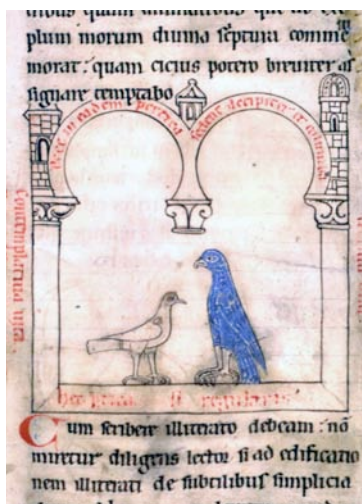 quam animantibus que ad ex
plum morum diuina scriptura comme
morat: quam cicius potero breuiter as
signare temptabo
Ecce in eadem pertica
sedent accipiter et columba
Contemplatiua uita
hec pertica
regularis
Cum scribere illiterato debeam: nō
miretur diligens lector si ad edificatio
nem illiterati de subtilibus simplicia